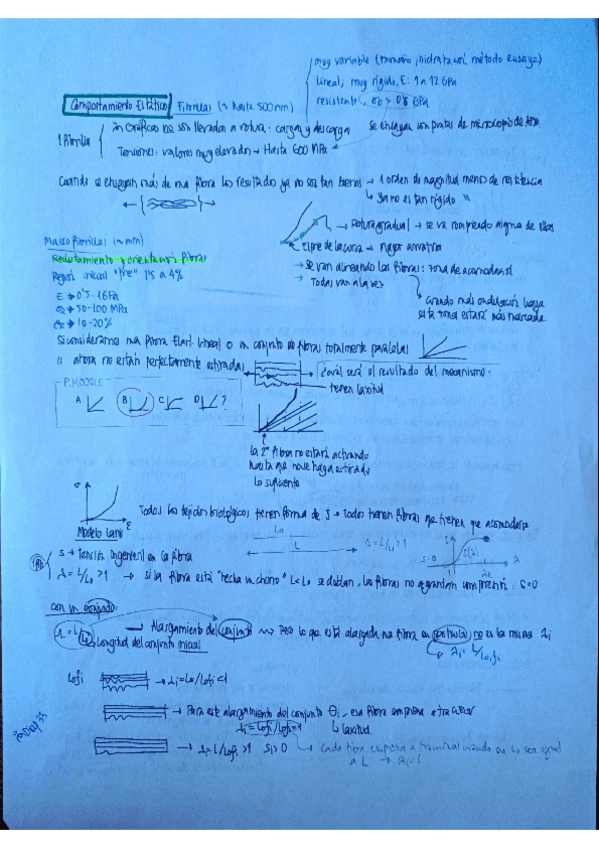 muy variable (tamaño, hidratación, método ensayo)
lineal, muy rígido, E: 1 a 12 GPa
resistente
Comportamiento Estático Fibrillas (≈ hasta 500nm)
1 Fibrilla
En Gráficos no son llevadas a rotura: carga y descarga
Se ensayan con puntas de microscopio de
Tensiones: valores muy elevados → Hasta 600 MPa
Cuando se ensayan más de una fibra los resultados ya no son tan buenos → 1 orden de magnitud menos de resistencia
ya no es tan rígido
→ Rotura gradual → se va rompiendo alguna de ellas
Macrofibrillas (≈ mm)
Reclutamiento y orientación fibras
Región inicial "pie" 1'5 a 4%
E → 0'5-1 GPa
→ 50-100 MPa
→ 10-20%
→ mayor
→ Se van alineando las fibras: zona de acomodación
Todas van a la vez
Cuando más ondulación haya
esta zona estará más marcada.
Si consideramos una fibra Elast. Lineal o un conjunto de fibras totalmente paralelas
ahora no están perfectamente estiradas
¿cuál será el resultado del mecanismo?
tienen laxitud
P. MOODLE
A B C D ?
la 2ª fibra no estará activando
hasta que no se haya estirado
lo suficiente
σ
ε
Modelo Lanir
Todos los tejidos biológicos tienen forma de J → Todo tienen fibras que tienen que acomodarse
L₀
L
λ = L/L₀ > 1
S=0
S(λ)
λ
S → Tensión ingenieril en la fibra
λ = L/L₀ > 1 → si la fibra está "hecha un churro" L<L₀ se doblan, las fibras no aguantan compresión: S=0
con un conjunto:
λ = L/L₀ → Alargamiento del conjunto → Pero lo que está alargada una fibra en no es la misma λi
Longitud del conjunto inicial
λi = L/L₀fi
L₀fi
→ λi = L₀/L₀fi < 1
→ Para este alargamiento del conjunto θi, esa fibra empieza a traccionar
λi = L₀fi/L₀fi = 1
laxitud
→ λ = L/L₀fi > 1 Si > 0 → Cada fibra empieza a traccionar cuando su L₀ sea igual
a L → λi = 1